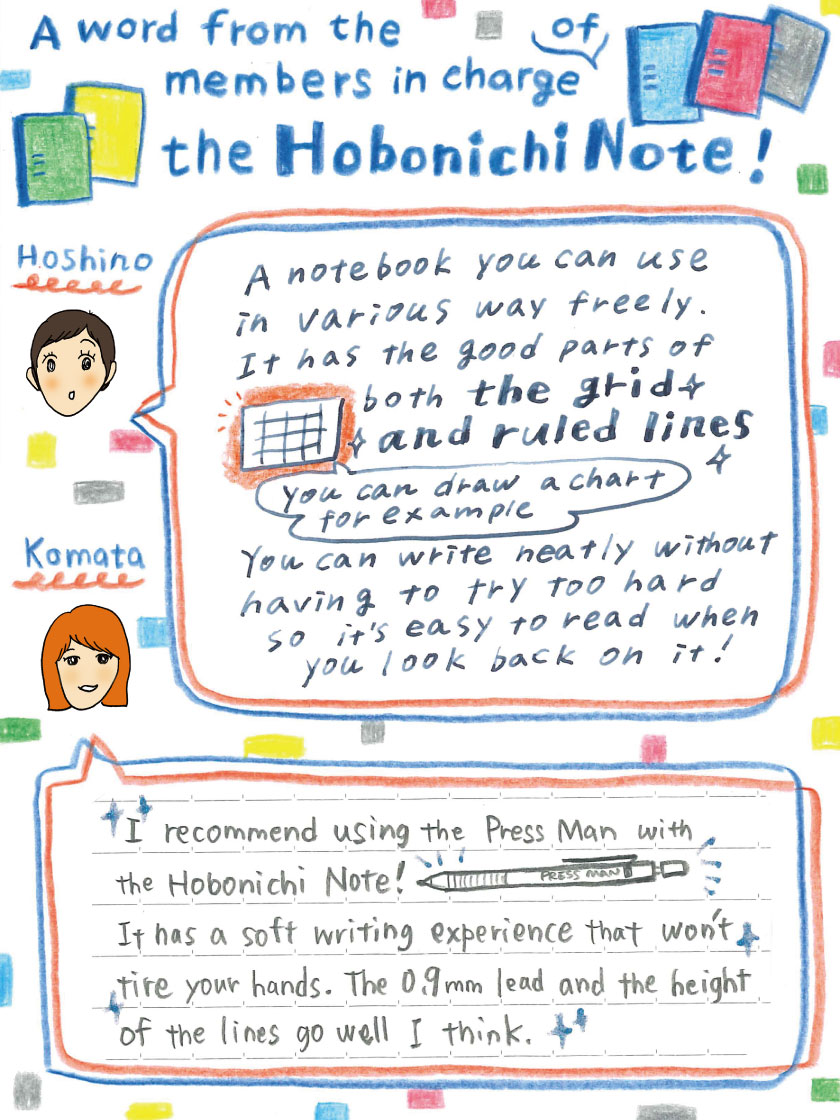 A word from the
members in charge of
the Hobonichi Note!
Hoshino
A notebook you can use
in various way freely.
It has the good parts of
both the grid
and ruled lines
You can draw a chart
for example
You can write neatly without
having to try too hard
so it's easy to read when
you look back on it!
Komata
I recommend using the Press Man with
the Hobonichi Note!
PRESS MAN
It has a soft writing experience that won't
tire your hands. The 0.9mm lead and the height
of the lines go well I think.